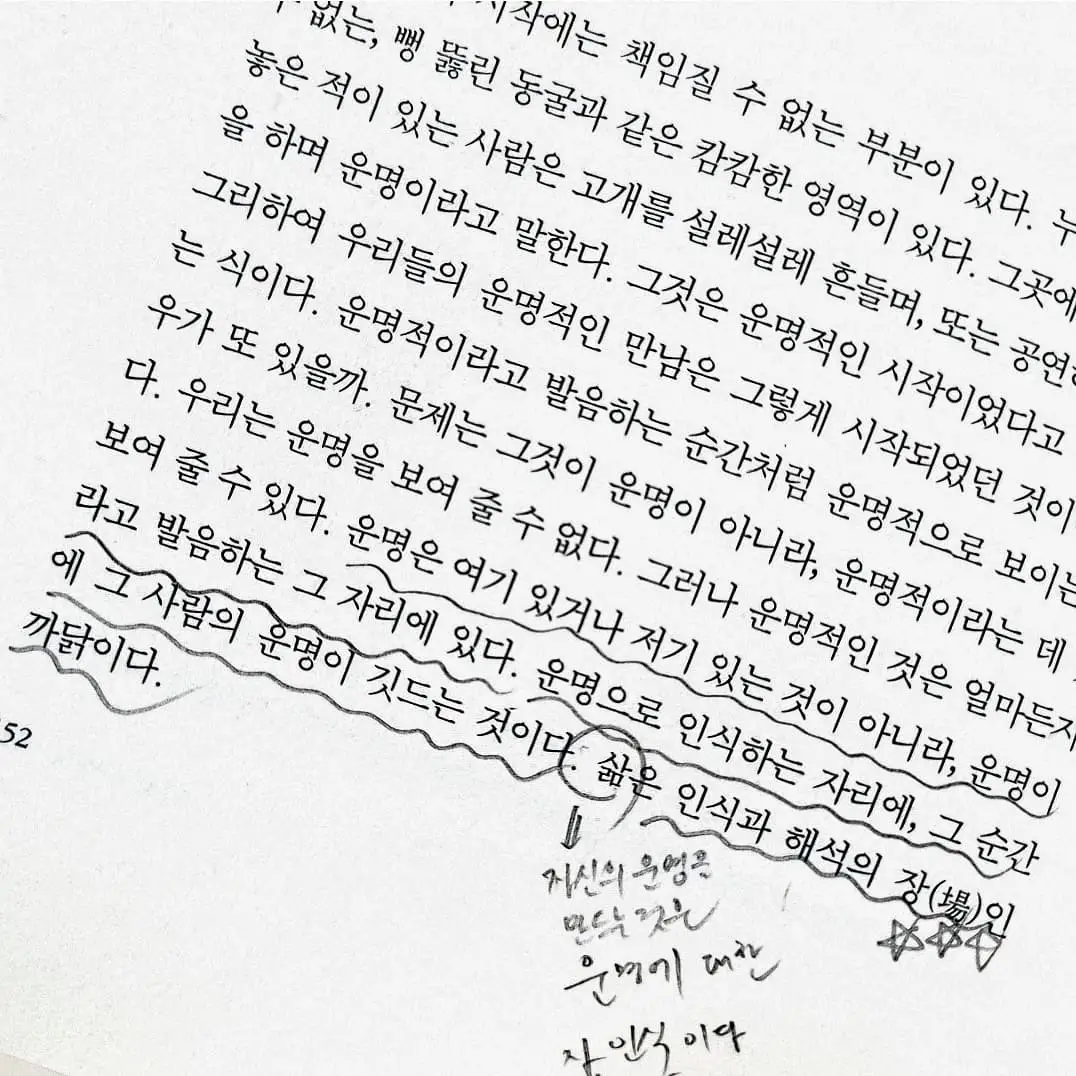 시작에는 책임질 수 없는 부분이 있다. 누
수 없는, 뻥 뚫린 동굴과 같은 캄캄한 영역이 있다. 그곳에
놓은 적이 있는 사람은 고개를 설레설레 흔들며, 또는 공연
을 하며 운명이라고 말한다. 그것은 운명적인 시작이었다고
그리하여 우리들의 운명적인 만남은 그렇게 시작되었던 것이
는 식이다. 운명적이라고 발음하는 순간처럼 운명적으로 보이는
우가 또 있을까. 문제는 그것이 운명이 아니라, 운명적이라는 데
다. 우리는 운명을 보여 줄 수 없다. 그러나 운명적인 것은 얼마든지
보여 줄 수 있다. 운명은 여기 있거나 저기 있는 것이 아니라, 운명이
라고 발음하는 그 자리에 있다. 운명으로 인식하는 자리에, 그 순간
에 그 사람의 운명이 깃드는 것이다. 삶은 인식과 해석의 장(場)인
까닭이다.
52
자신의 운명을
만드는 것은
운명에 대한
인식이다